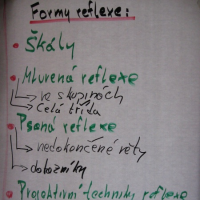 Formy reflexe:
• Škály
• Mluvená reflexe
→ ve skupinách
→ Celá třída
• Psaná reflexe
→ nedokončené věty
→ dobozníky
• Projektivní techniky reflexe